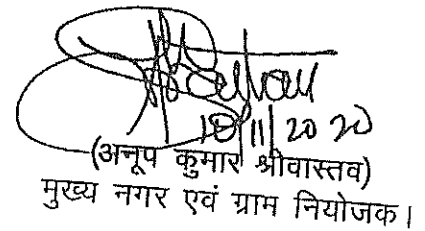 10/11/2020
(अनूप कुमार श्रीवास्तव)
मुख्य नगर एवं ग्राम नियोजक।